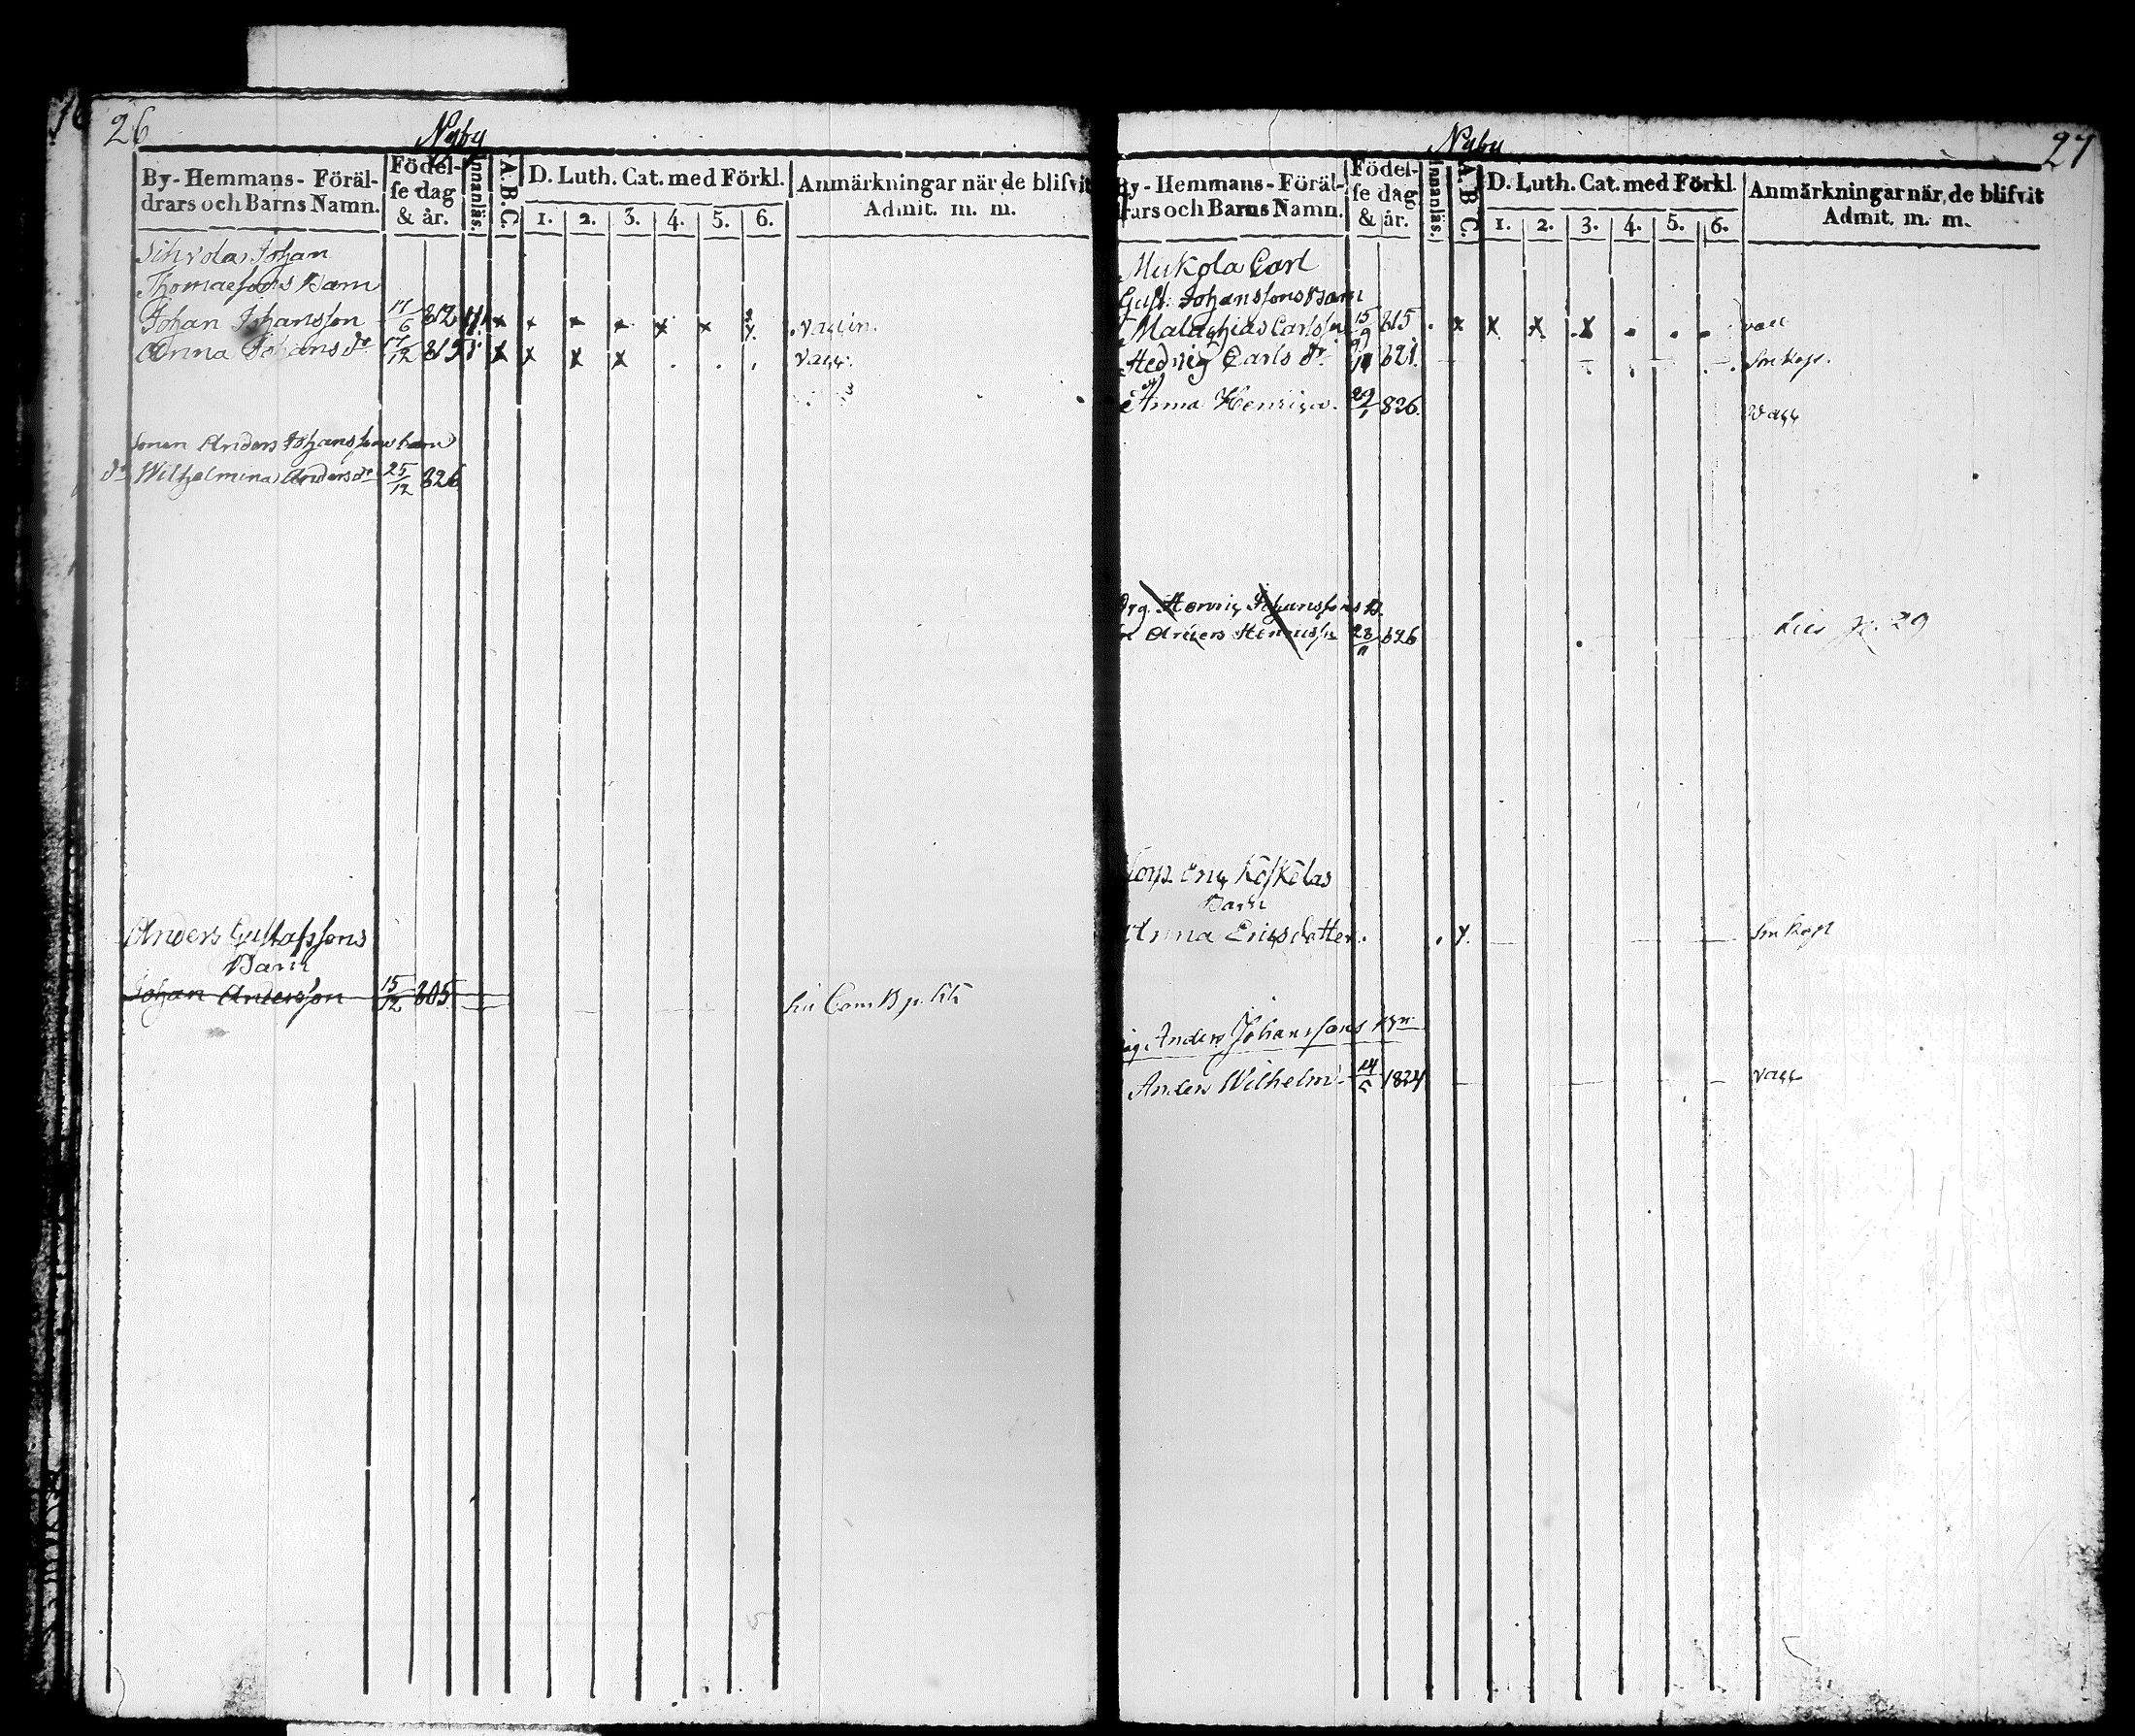 26
Nyby
By-Hemmans-Föräl-
drars och Barns Namn.
Födel-
se dag
& år.
Innanläs.
A. B. C.
D. Luth. Cat. med Förkl.
1. 2. 3. 4. 5. 6.
Anmärkningar när de blifvit
Admit. m. m.
Johan
Thomaessons Barn
Johan Johansson 17/6 812 x x x x x x vaccin.
Anna Johans dr 17/12 815 x x x x . . . vacc.
Sonen Anders Johanssons barn
dr Wilhelmina Anders dr 25/12 826
Anders Gustafssons
Barn
Johan Andersson 15/12 805
27
Nyby
By-Hemmans-Föräl-
drars och Barns Namn.
Födel-
se dag
& år.
Innanläs.
A. B. C.
D. Luth. Cat. med Förkl.
1. 2. 3. 4. 5. 6.
Anmärkningar när de blifvit
Admit. m. m.
Mukola Carl
Gust. Johanssons Barn
Malachias Carlsson 15/9 815 . x x x x . . . vacc
Hedvig Carls dr 821. Smkop.
Anna Henrica. 29/1 826. Vacc
Drg. Henric Johanssons B.
Sn Anders Henricss 28/11 826 29
Eric Koskelas
Barn
Anna Ericsdotter. . x. Smkopt
Anders Johanssons Bn
Anders Wilhelm 14/5 1824 vacc